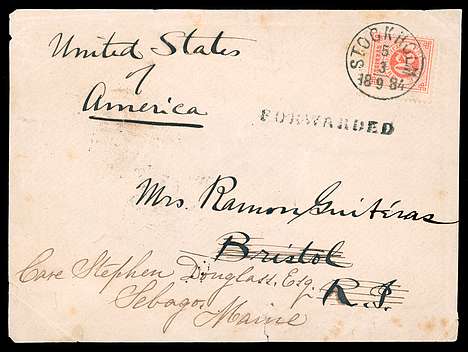 United States
of
America
STOCKHOLM
5
3
18 9 84
FORWARDED
Mrs. Ramon Guitéras
Bristol
R.I.
Care Stephen Douglass, Esq.
Sebago,
Maine